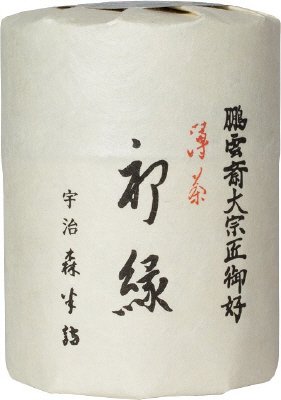 鵬雲斎大宗匠御好
薄茶
初緑
宇治 森半詰